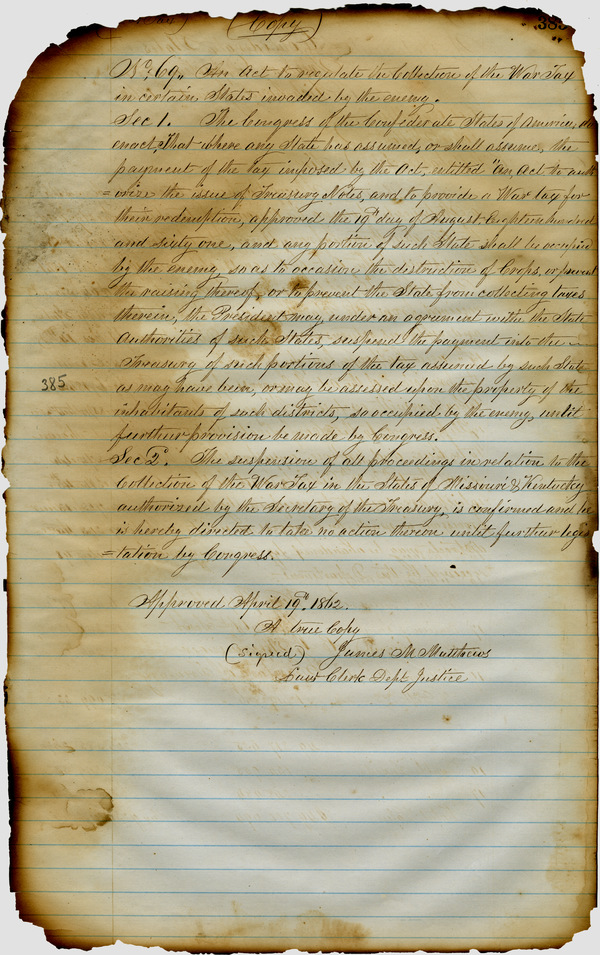 (Copy)
385
No. 69. An Act to regulate the Collection of the War Tax
in certain States invaded by the enemy.
Sec 1. The Congress of the Confederate States of America, do
enact, That where any State has assumed, or shall assume, the
payment of the tax imposed by the Act, entitled "An Act to auth
=orize the issue of Treasury Notes, and to provide a War tax for
their redemption, approved the 19th day of August Eighteen hundred
and sixty one, and any portion of such State shall be occupied
by the enemy, so as to occasion the destruction of Crops, or prevent
the raising thereof, or to prevent the State from collecting taxes
therein, the President may, under an agreement with the State
Authorities of such States, suspend the payment into the
Treasury of such portions of the tax assumed by such State
385
as may have been, or may be assessed upon the property of the
inhabitants of such districts, so occupied by the enemy, until
further provision be made by Congress.
Sec 2d. The suspension of all proceedings in relation to the
Collection of the War Tax in the States of Missouri & Kentucky
authorized by the Secretary of the Treasury, is confirmed and he
is hereby directed to take no action thereon until further legis
=lation by Congress.
Approved April 19th 1862.
A true Copy
(signed) James M Matthews
Law Clerk Dept Justice